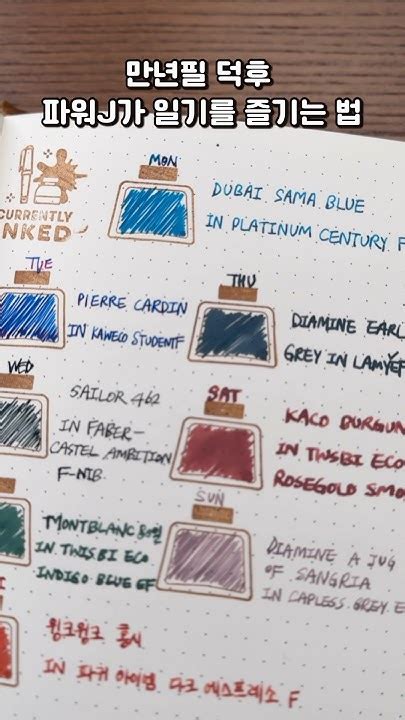 만년필 덕후
파워J가 일기를 즐기는 법
CURRENTLY
INKED
MON
DUBAI SAMA BLUE
IN PLATINUM CENTURY F
TUE
PIERRE CARDIN
IN KAWECO STUDENT F
THU
DIAMINE EARL
GREY IN LAMY EF
WED
SAILOR 462
IN FABER-
CASTEL AMBITION
F-NIB
SAT
KACO BURGUN
IN TWSBI ECO
ROSEGOLD SMO
MONTBLANC
IN TWISBI ECO
INDIGO BLUE EF
SUN
DIAMINE A JUG
OF SANGRIA
IN CAPLESS GREY E
윙크윙크 홍시
IN 파커 아이엠 다크 에스프레소 F